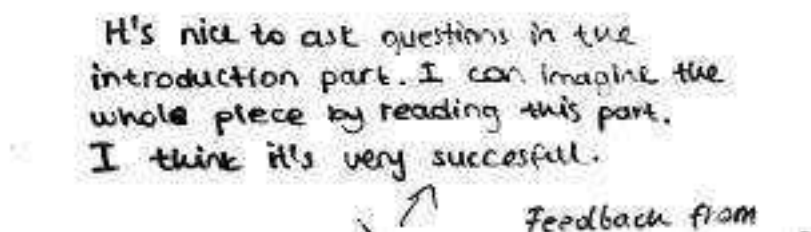 It's nice to ask questions in the
introduction part. I can imagine the
whole piece by reading this part.
I think it's very succesfull.
Feedback from